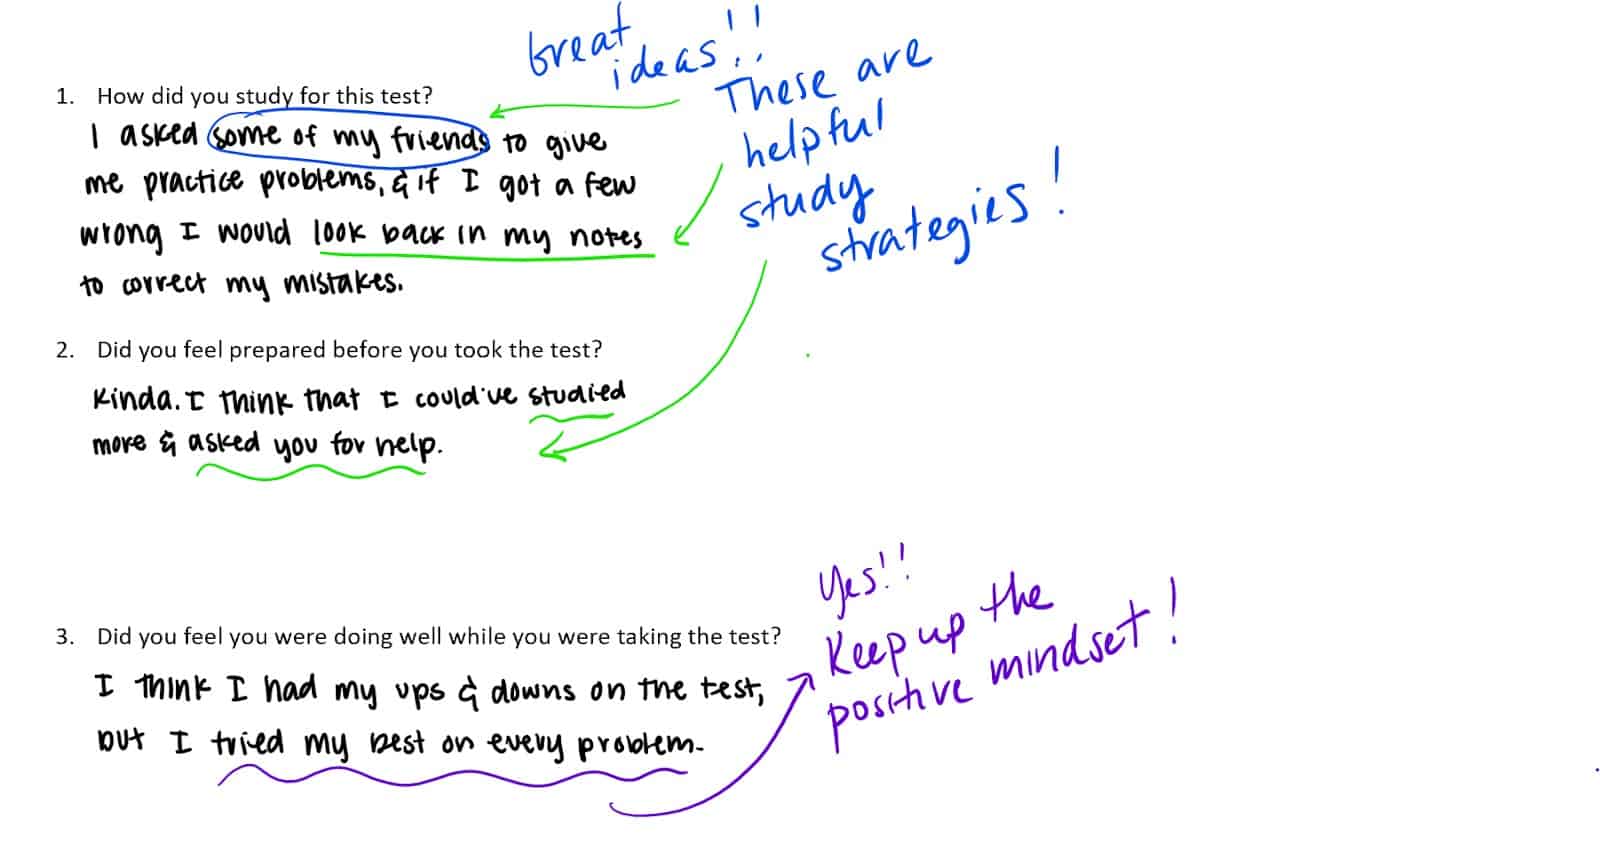 Great
ideas!!
These are
helpful
study
strategies!
1. How did you study for this test?
I asked some of my friends to give
me practice problems, & if I got a few
wrong I would look back in my notes
to correct my mistakes.
2. Did you feel prepared before you took the test?
Kinda. I think that I could've studied
more & asked you for help.
3. Did you feel you were doing well while you were taking the test?
I think I had my ups & downs on the test,
but I tried my best on every problem.
Yes!!
Keep up the
positive mindset!